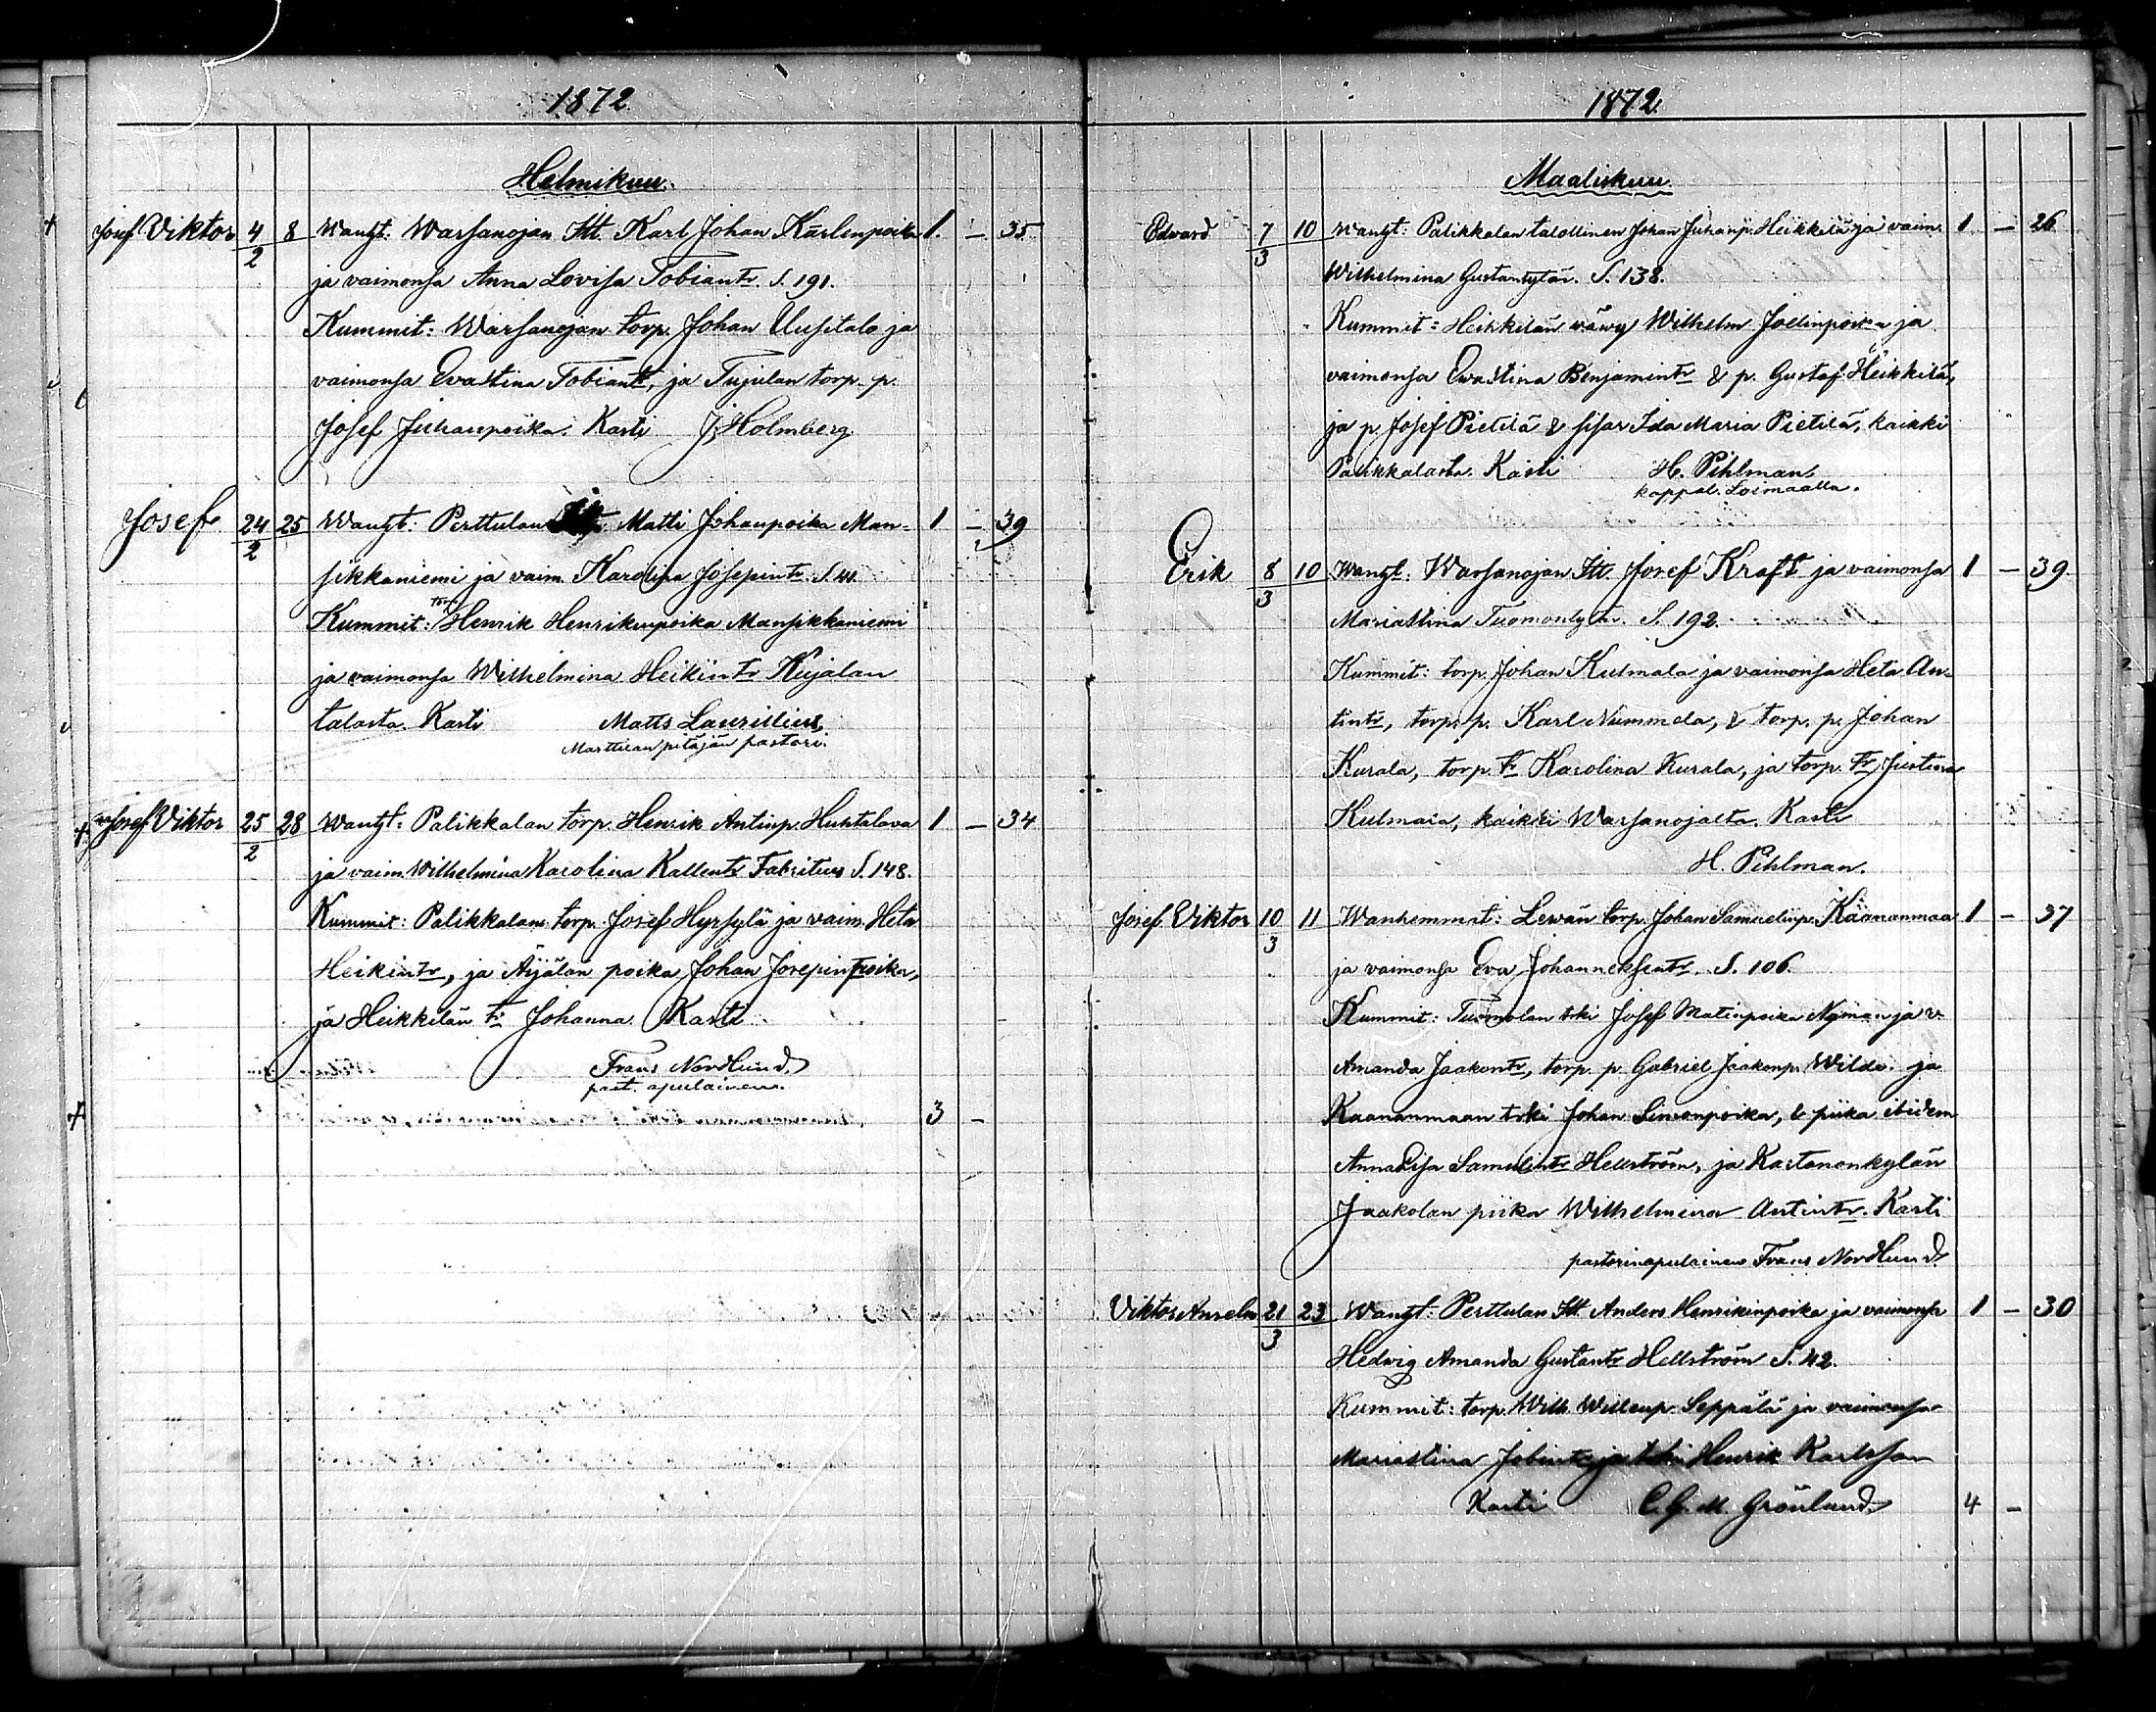 1872.
Helmikuu.
Josef Viktor 4/2 8 Wangt: Warsanojan Itt. Karl Johan Karlenpoika 1. – 35
ja vaimonsa Anna Lovisa Tobiantr. S. 191.
Kummit: Warsanojan torp. Johan Uusitalo ja
vaimonsa Evastina Tobiantr, ja Tujulan torp. p.
Josef Juhanpoika. Kasti J. Holmberg.
Josef 24/2 25 Wangt: Perttulan Matti Johanpoika Man- 1 – 39
sikkaniemi ja vaim. Karolina Josepintr. S. 41
Kummit: torp Henrik Henrikinpoika Mansikkaniemi
ja vaimonsa Wilhelmina Heikintr Kujalan
talosta. Kasti Matts Laurillius,
Marttilan pitäjän pastori.
Josef Viktor 25/2 28 Wangt: Palikkalan torp. Henrik Antinp. Huhtalava 1 – 34
ja vaim. Wilhelmina Karolina Kallentr Fabritius S. 148.
Kummit: Palikkalan torp. Josef Hyrsylä ja vaim. Heta
Heikintr, ja Äijälän poika Johan Josepinpoika,
ja Heikkilän tr Johanna. Kasti
Frans Nordlund.
past. apulainen.
3 –
1872.
Maaliskuu.
Edvard 7/3 10 Wangt: Palikkalan talollinen Johan Juhanp. Heikkilä ja vaim. 1 – 26
Wilhelmina Gustantytär. S. 138.
Kummit: Heikkilän wäwy Wilhelm Joelinpoika ja
vaimonsa Ewastina Benjamintr & p. Gustaf Heikkilä,
ja p. Josef Pietilä & sisar Ida Maria Pietilä, kaikki
Palikkalasta. Kasti H. Pihlman
kappal. Loimaalla.
Erik 8/3 10 Wangt: Warsanojan Itt. Josef Kraft ja vaimonsa 1 – 39
Mariastina Tuomontytr. S. 192.
Kummit: torp. Johan Kulmala ja vaimonsa Heta An-
tintr, torp. p. Karl Nummela, & torp. p. Johan
Kurala, torp. tr Karolina Kurala, ja torp. tr Justina
Kulmala, kaikki Warsanojalta. Kasti
H. Pihlman.
Josef Viktor 10/3 11 Wanhemmat: Lewän torp. Johan Samuelinp. Kaananmaa 1 – 37
ja vaimonsa Eva Johanneksentr. S. 106.
Kummit: Tuomolan trki Josef Matinpoika Nyman ja v.
Amanda Jaakontr, torp. p. Gabriel Jaakonp. Wilde. ja
Kaananmaan trki Johan Simonpoika, & piika ibidem
Annalisa Samulintr Hellström, ja Kartanonkylän
Jaakolan piika Wilhelmina Antintr. Kasti
pastorinapulainen Frans Nordlund.
Viktor Anselm 21/3 23 Wangt: Perttulan Itt. Anders Henrikinpoika ja vaimonsa 1 – 30
Hedvig Amanda Gustantr Hellström S. 42.
Kummit: torp. Wilh. Willenp. Seppälä ja vaimonsa
Mariastina Jobintr ja trki Henrik Karlsson
Kasti C. G. M. Grönlund. 4 –